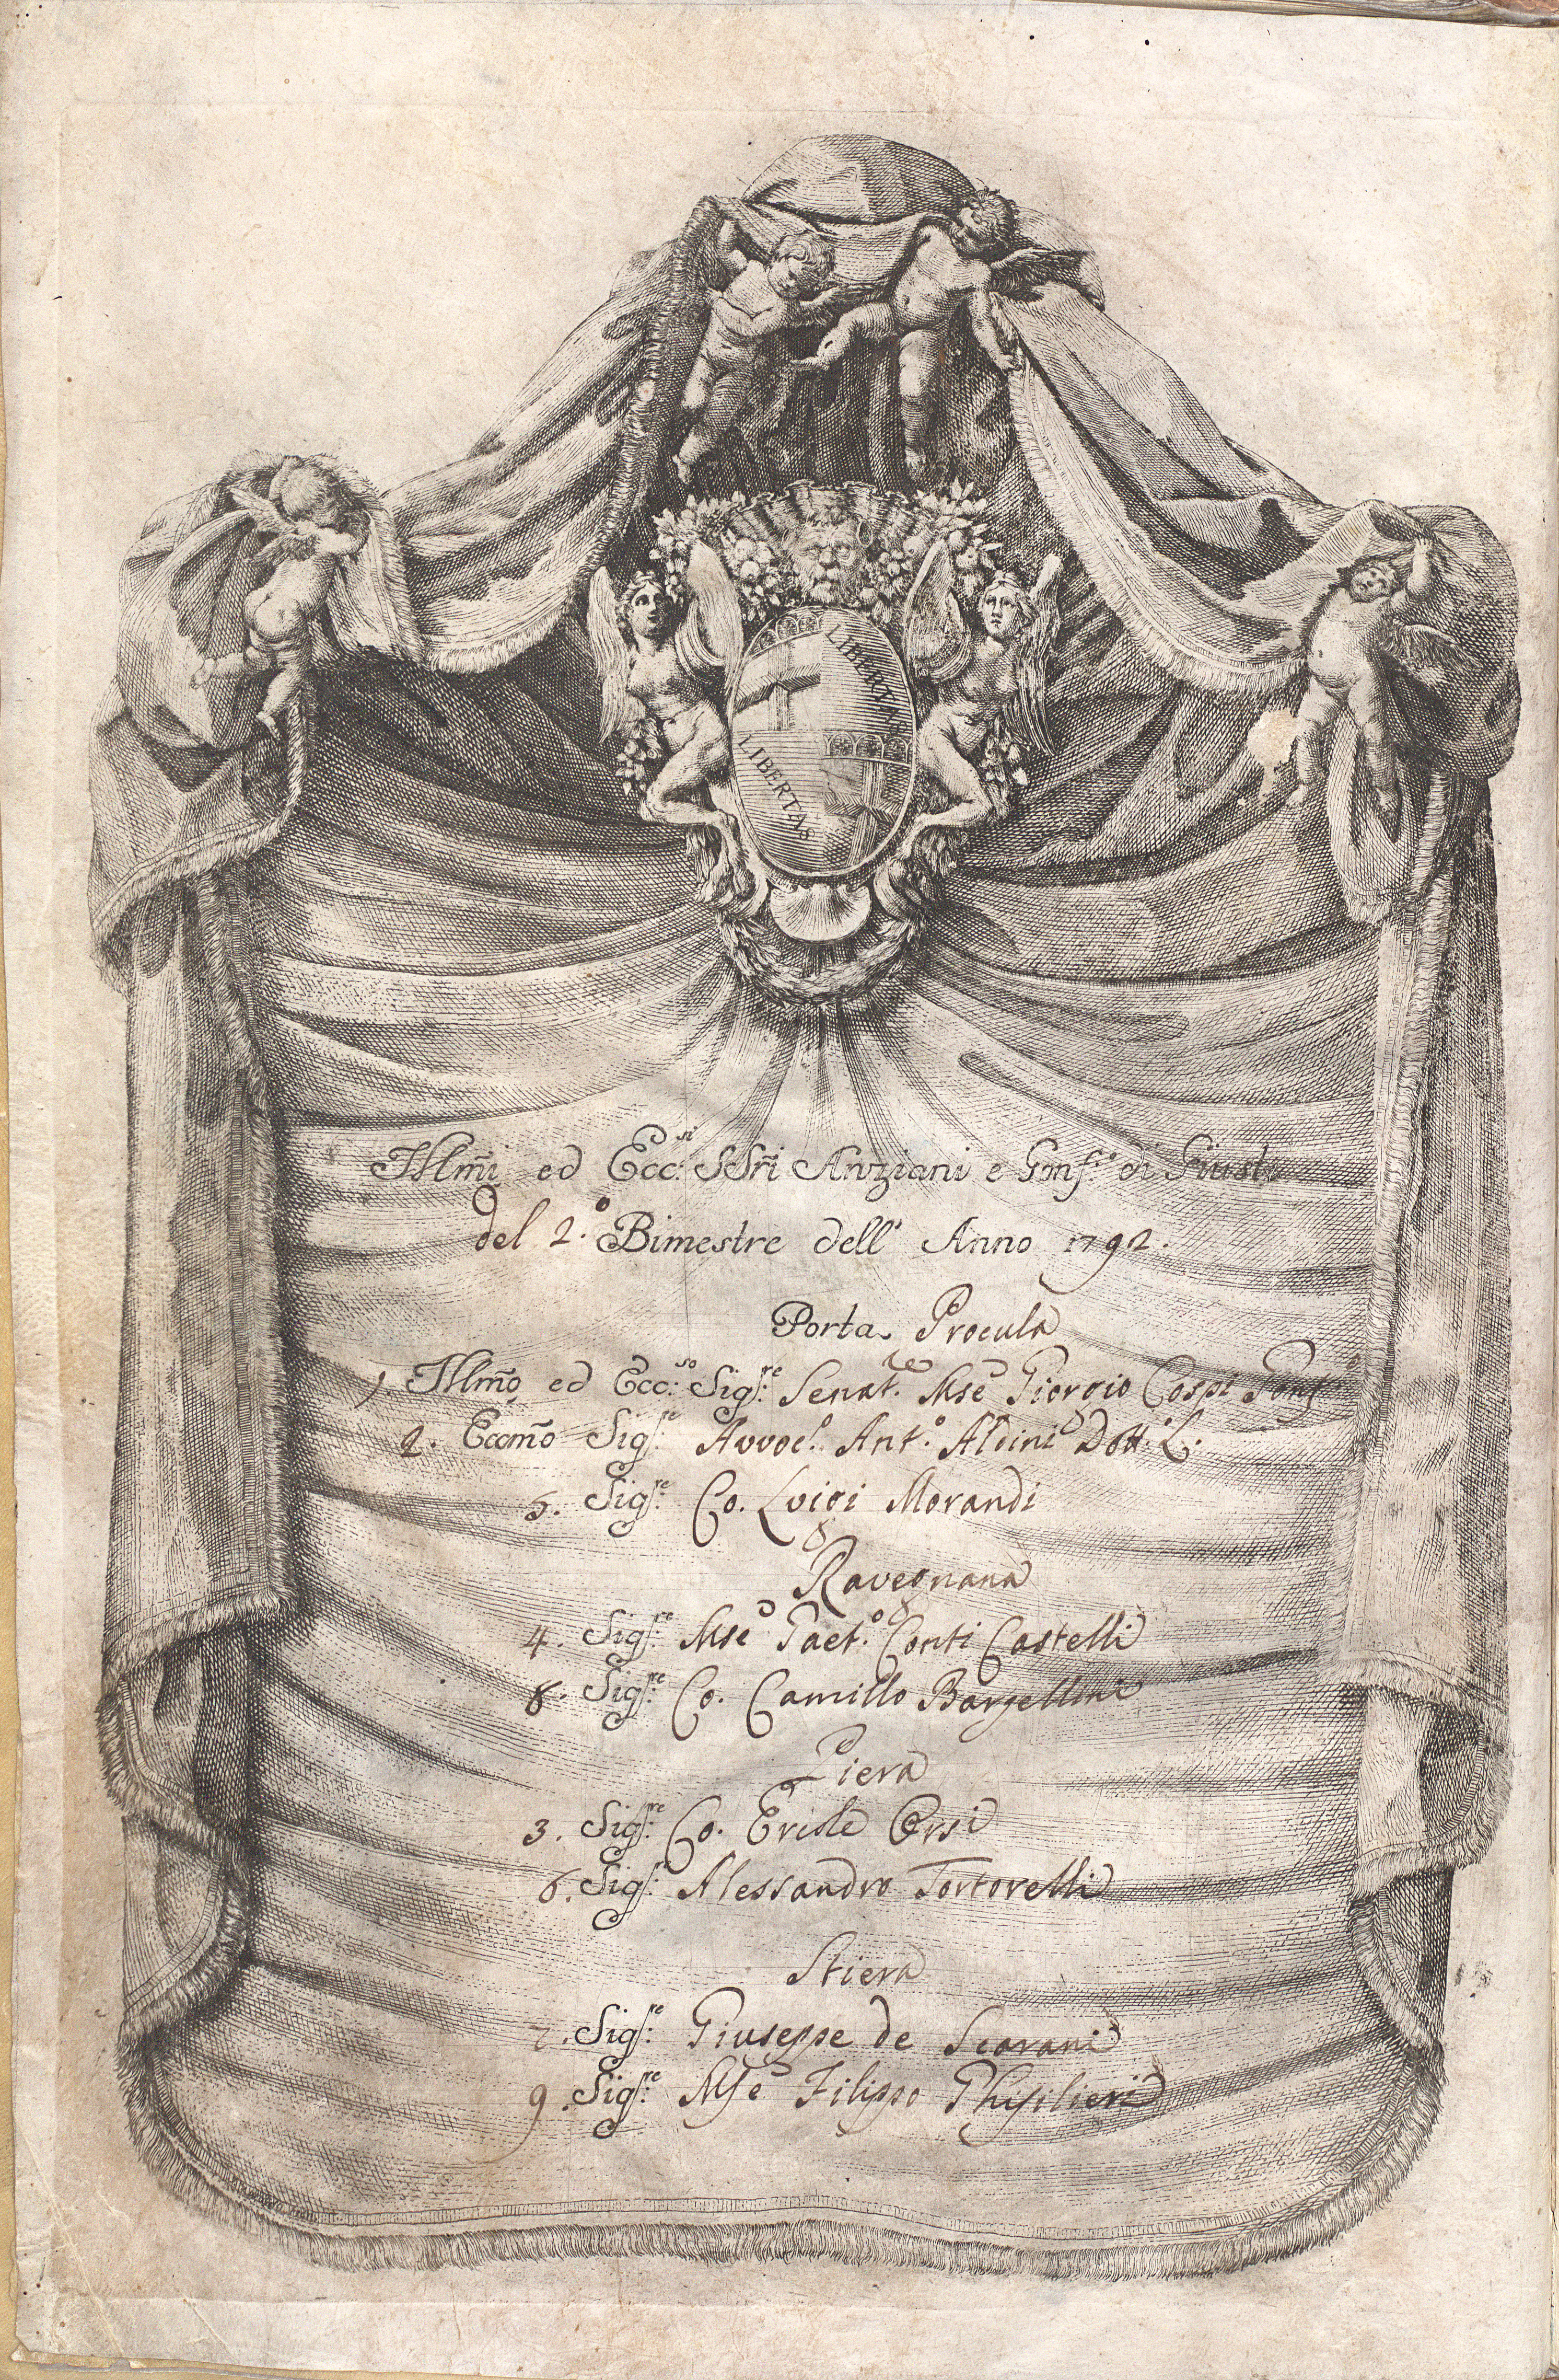 LIBERTAS
LIBERTAS
Illm̃i ed Ecc:si SSri Anziani e Gonf:o di Giusti
del 2.o Bimestre dell' Anno 1792.
Porta Procula
1. Illm̃o ed Ecc:so Sig:re Senat:re Mse Giorgio Cospi Gonf
2. Eccm̃o Sig:re Avvoc.o Ant.o Aldini Dott. L.
5. Sig:re Co. Luigi Morandi
Ravegnana
4. Sig:re Mse Gaet.o Conti Castelli
8. Sig:re Co. Camillo Bargellini
Piera
3. Sig:re Co. Ercole Orsi
6. Sig:re Alessandro Fortorelli
Stiera
7. Sig:re Giuseppe de Scarani
9. Sig:re Mse Filippo Ghisilieri